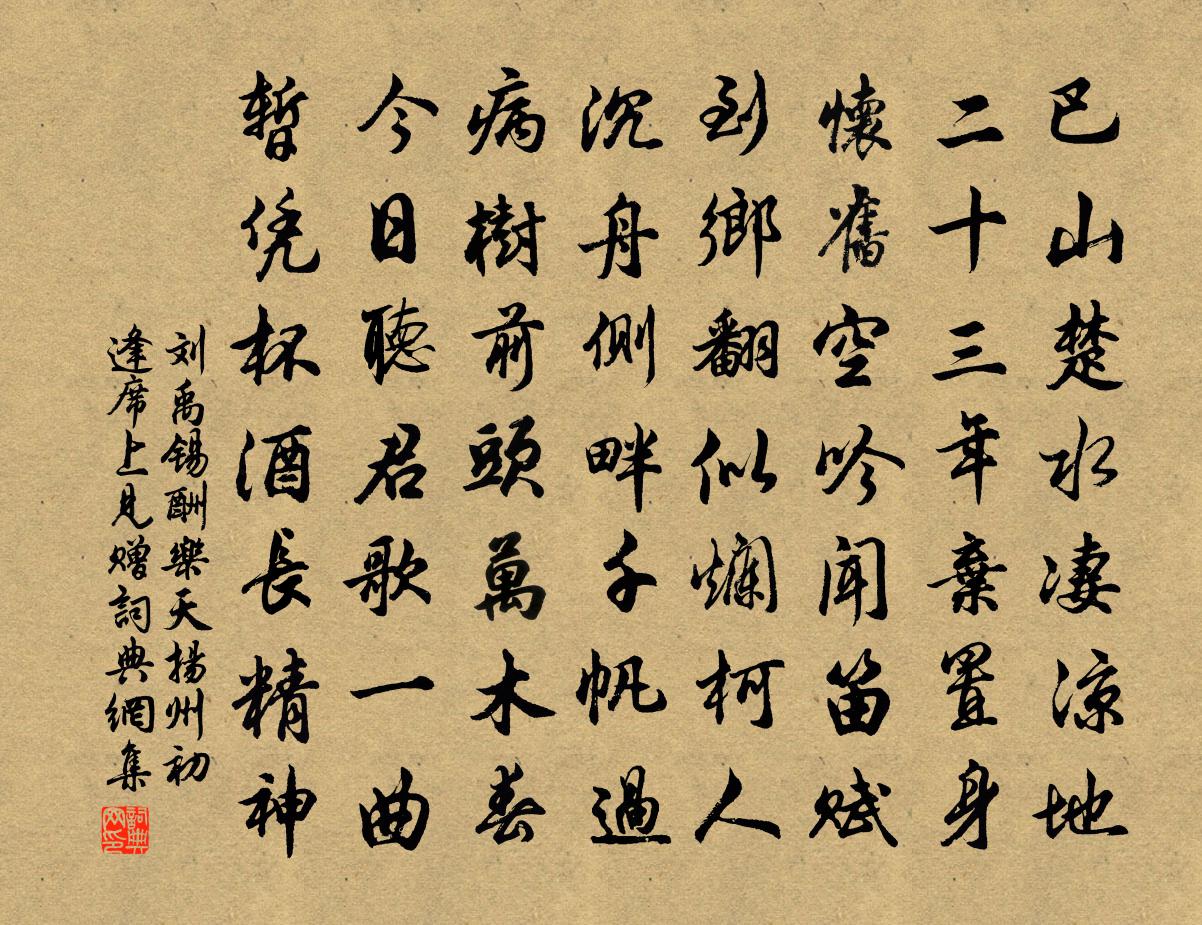 巴山楚水凄涼地
二十三年棄置身
懷舊空吟聞笛賦
到鄉翻似爛柯人
沉舟側畔千帆過
病樹前頭萬木春
今日聽君歌一曲
暫凭杯酒長精神
刘禹锡酬樂天揚州初
逢席上見贈詞典網集
詞典
网印